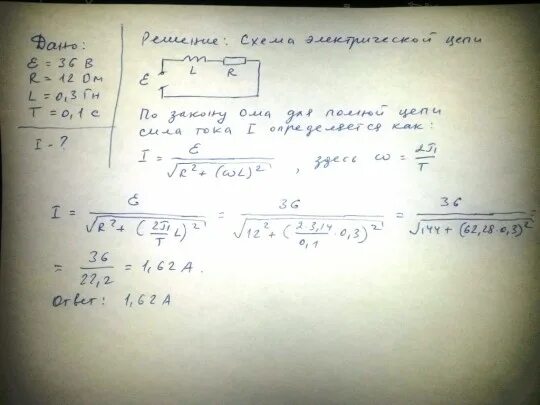 Дано:
Ɛ = 36 В
R = 12 Ом
L = 0,3 Гн
T = 0,1 с
I - ?
Решение: Схема электрической цепи
Ɛ L R
По закону Ома для полной цепи
сила тока I определяется как:
I = Ɛ / √(R² + (ωL)²) , здесь ω = 2π/T
I = Ɛ / √(R² + (2π/T L)²) = 36 / √(12² + (2·3,14/0,1 · 0,3)²) = 36 / √(144 + (62,28·0,3)²)
= 36/22,2 = 1,62 А.
Ответ: 1,62 А